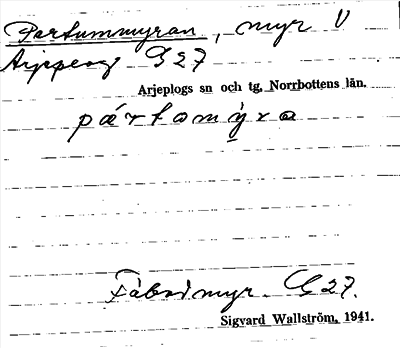 Partummyran, myr V
Arjeplog G 27
Arjeplogs sn och tg, Norrbottens län.
pártomýra
Fåbsimyr G 27.
Sigvard Wallström, 1941.